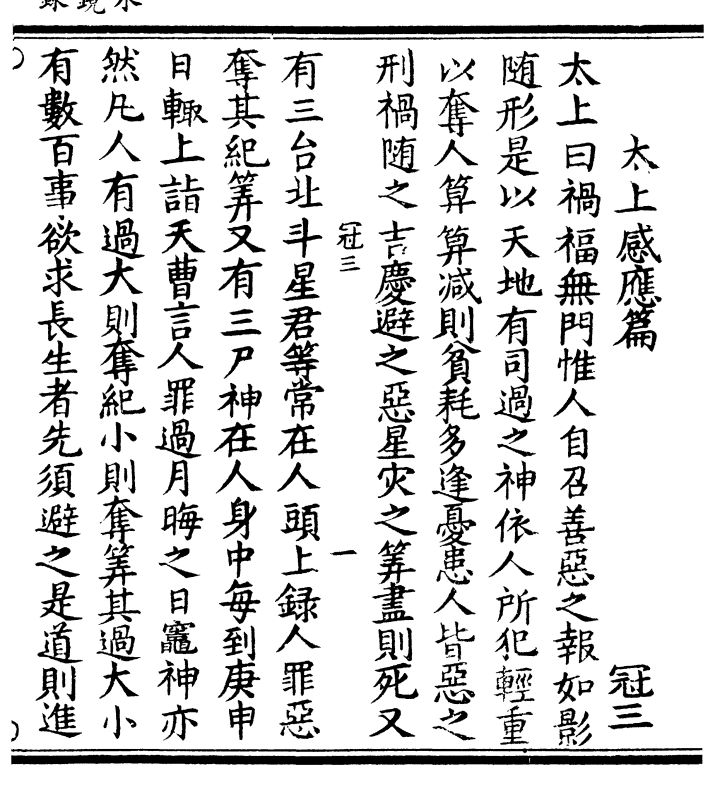 太上感應篇 冠三
太上曰禍福無門惟人自召善惡之報如影
随形是以天地有司過之神依人所犯輕重
以奪人算算减則貧耗多逢憂患人皆惡之
刑禍随之吉慶避之惡星灾之筭盡則死又
冠三 一
有三台北斗星君等常在人頭上録人罪惡
奪其紀筭又有三尸神在人身中每到庚申
日輙上詣天曹言人罪過月晦之日竈神亦
然凡人有過大則奪紀小則奪筭其過大小
有數百事欲求長生者先須避之是道則進